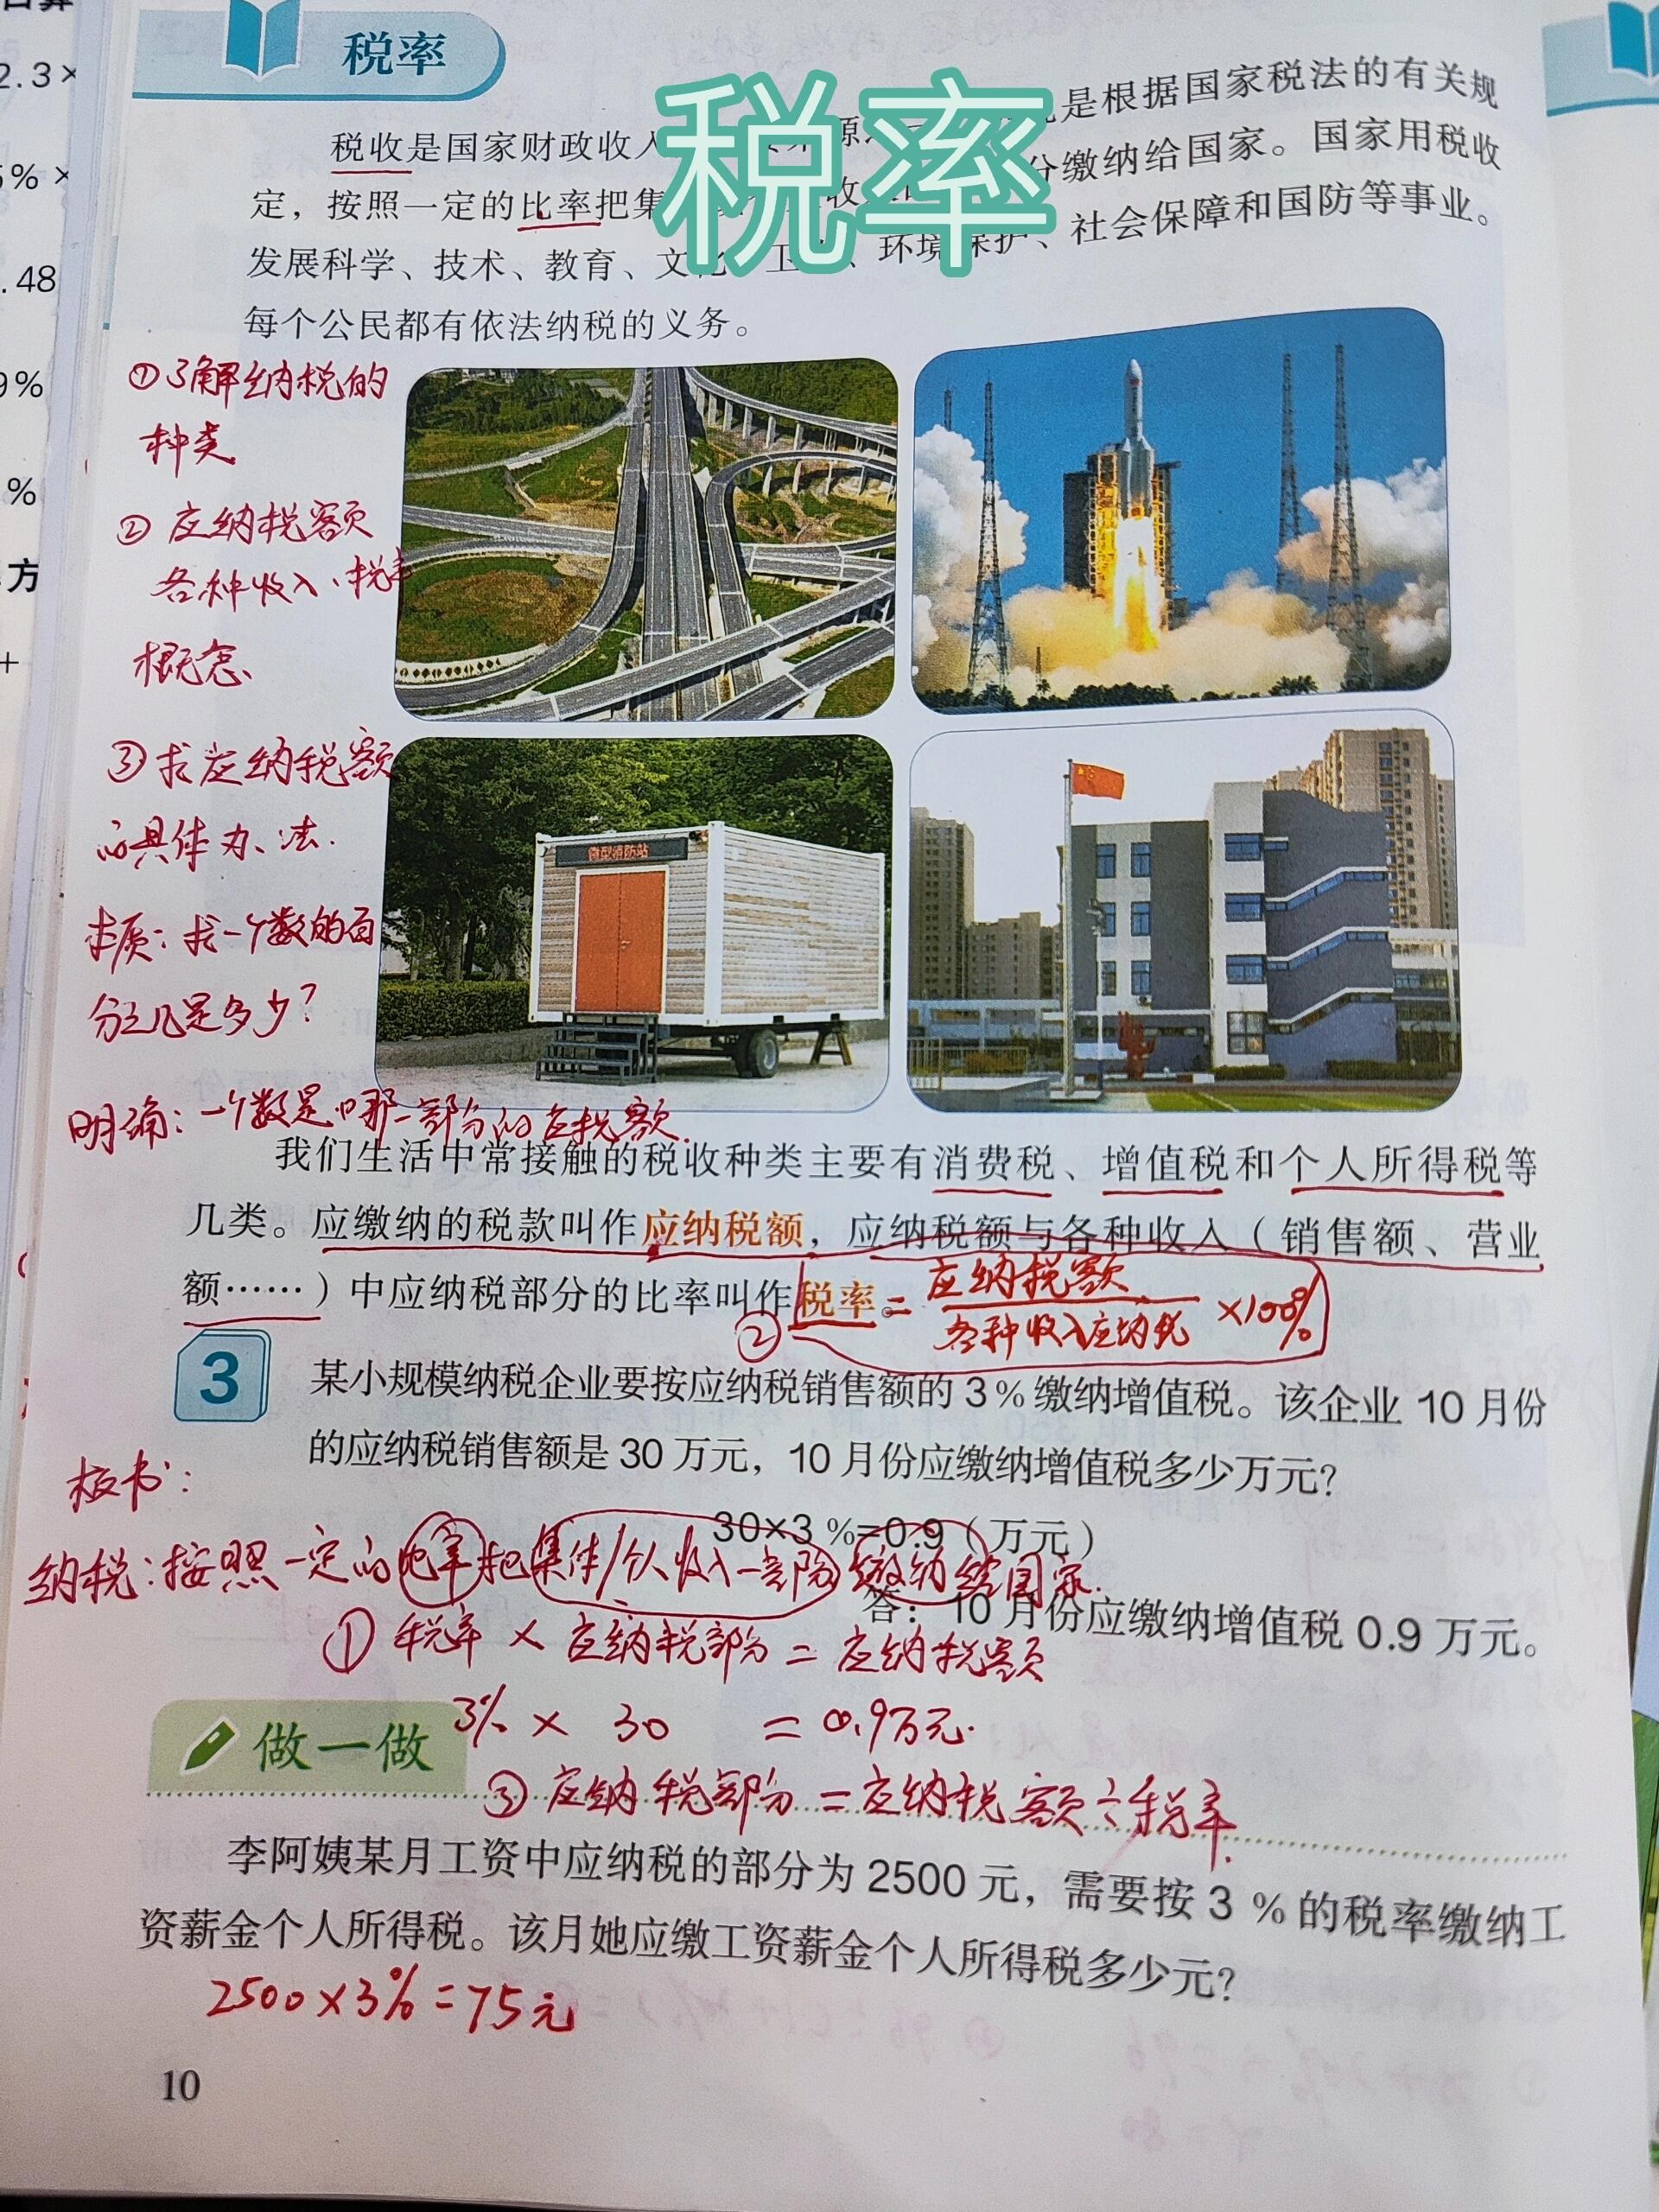 税率
税率
税收是国家财政收入
是根据国家税法的有关规
定，按照一定的比率把集
分缴纳给国家。国家用税收
发展科学、技术、教育、文化、卫
、环境保护、社会保障和国防等事业。
每个公民都有依法纳税的义务。
①了解纳税的
种类
②应纳税额
各种收入、税率
概念、
③求应纳税额
的具体办法.
本质：求一个数的百
分之几是多少？
明确：一个数是哪一部分的
税额.
微型消防站
我们生活中常接触的税收种类主要有消费税、增值税和个人所得税等
几类。应缴纳的税款叫作应纳税额，应纳税额与各种收入（销售额、营业
额……）中应纳税部分的比率叫作税率。
= 应纳税额
各种收入应纳税
×100%
②
3
某小规模纳税企业要按应纳税销售额的 3%缴纳增值税。该企业 10 月份
的应纳税销售额是 30 万元，10 月份应缴纳增值税多少万元？
30×3 %=0.9（万元）
答：10 月份应缴纳增值税 0.9 万元。
板书：
纳税：按照一定的比率把集体/个人收入一部份缴纳给国家.
① 税率 × 应纳税部分 = 应纳税额
3% × 30 = 0.9万元.
③ 应纳税部分 = 应纳税额÷税率.
做一做
李阿姨某月工资中应纳税的部分为 2500 元，需要按 3 %的税率缴纳工
资薪金个人所得税。该月她应缴工资薪金个人所得税多少元？
2500×3%=75元
10
2.3×
5%×
.48
9%
%
方
+